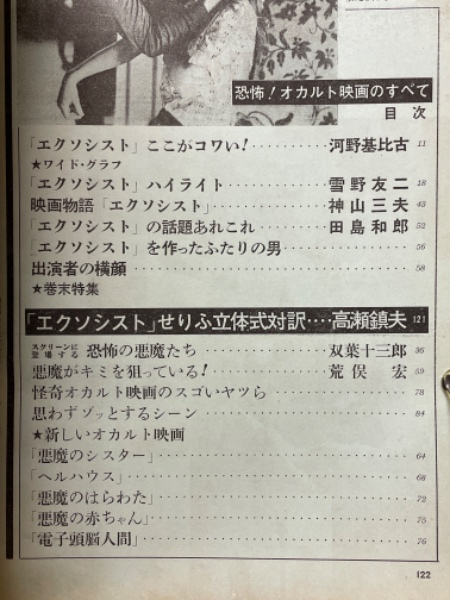 恐怖!オカルト映画のすべて
目次
「エクソシスト」ここがコワい!‥‥‥‥河野基比古 11
★ワイド・グラフ
「エクソシスト」ハイライト‥‥‥‥雪野友二 18
映画物語「エクソシスト」‥‥‥‥神山三夫 43
「エクソシスト」の話題あれこれ‥‥‥‥田島和郎 52
「エクソシスト」を作ったふたりの男‥‥‥‥56
出演者の横顔‥‥‥‥58
★巻末特集
「エクソシスト」せりふ立体式対訳‥‥高瀬鎮夫 121
スクリーンに登場する 恐怖の悪魔たち‥‥‥‥双葉十三郎 96
悪魔がキミを狙っている!‥‥‥‥荒俣宏 59
怪奇オカルト映画のスゴいヤツら‥‥‥‥78
思わずゾッとするシーン‥‥‥‥84
★新しいオカルト映画
「悪魔のシスター」‥‥‥‥64
「ヘルハウス」‥‥‥‥68
「悪魔のはらわた」‥‥‥‥72
「悪魔の赤ちゃん」‥‥‥‥75
「電子頭脳人間」‥‥‥‥76
122